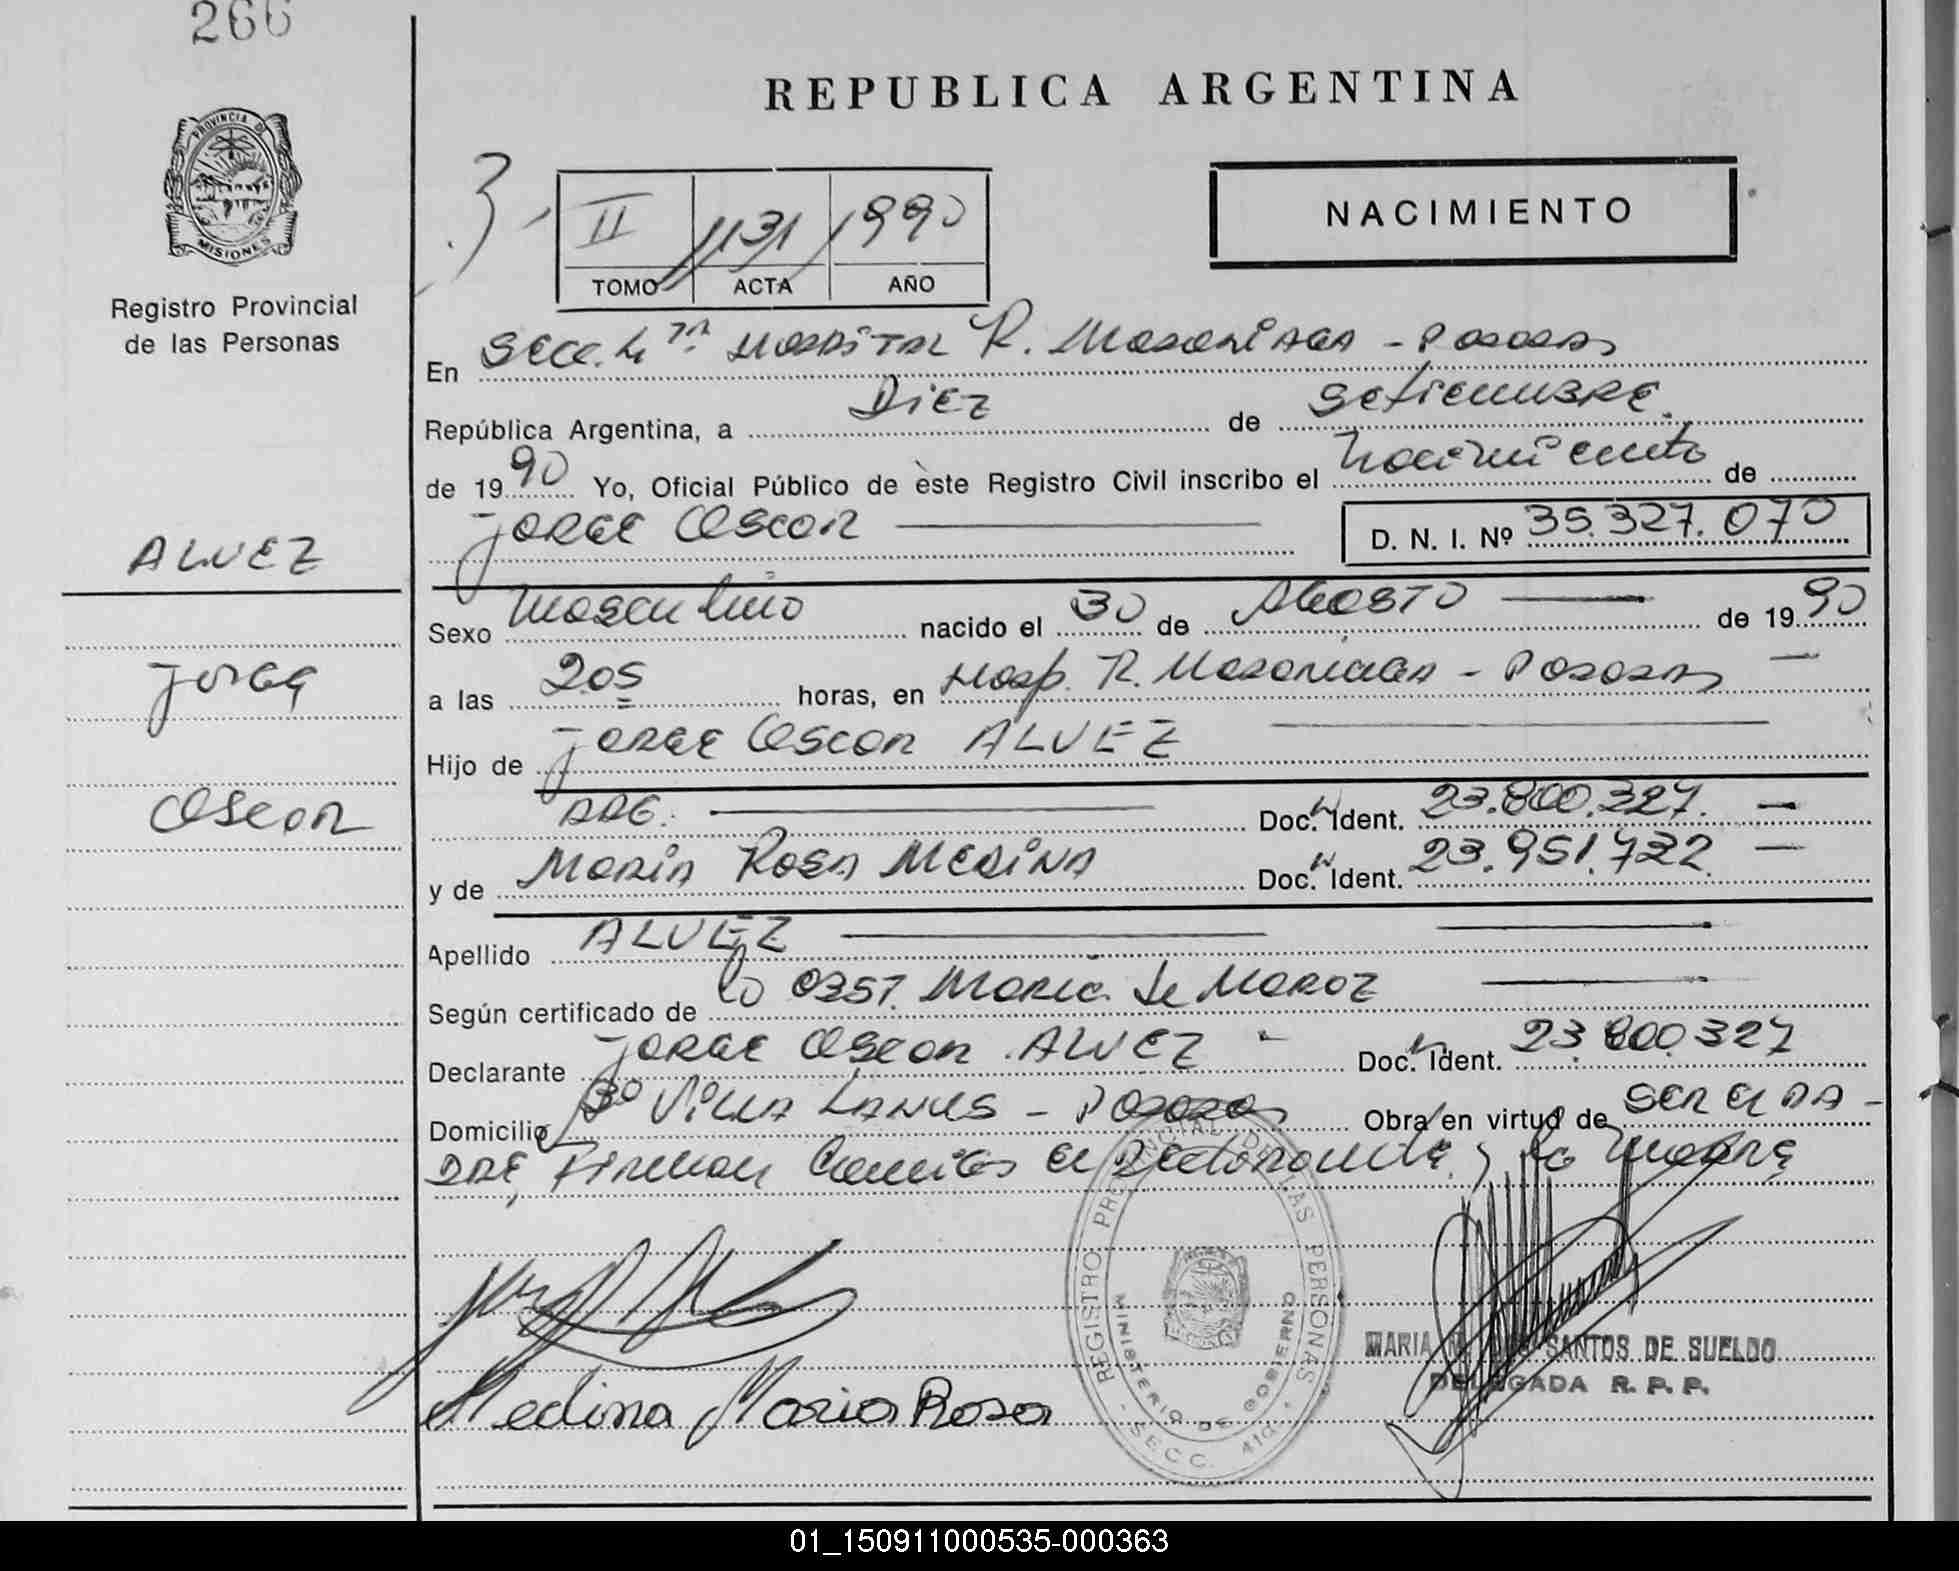 266
REPUBLICA ARGENTINA
PROVINCIA DE
MISIONES
Registro Provincial
de las Personas
3
II 1131 1990
TOMO ACTA AÑO
NACIMIENTO
En Secc. 4ta Hospital R. Madariaga - Posadas
República Argentina, a Diez de Setiembre.
de 1990 Yo, Oficial Público de este Registro Civil inscribo el nacimiento de
Jorge Oscar D. N. I. Nº 35.327.070
ALVEZ
Jorge
Oscar
Sexo masculino nacido el 30 de Agosto de 1990
a las 2.05 horas, en Hosp. R. Madariaga - Posadas
Hijo de Jorge Oscar ALVEZ
ARG. Doc. Ident. 23.800.327.
y de Maria Rosa MEDINA Doc. Ident. 23.951.732
Apellido ALVEZ
Según certificado de la Obst. Maria de Maroz
Declarante Jorge Oscar ALVEZ Doc. Ident. 23.800.327
Domicilio Bº Villa Lanus - Posadas Obra en virtud de ser el pa-
dre, Firman el declarante y la madre
Medina Maria Rosa
REGISTRO PROVINCIAL DE LAS PERSONAS
MINISTERIO DE GOBIERNO
SECC. 4ta.
MARIA SANTOS DE SUELDO
DELEGADA R. P. P.
01_150911000535-000363